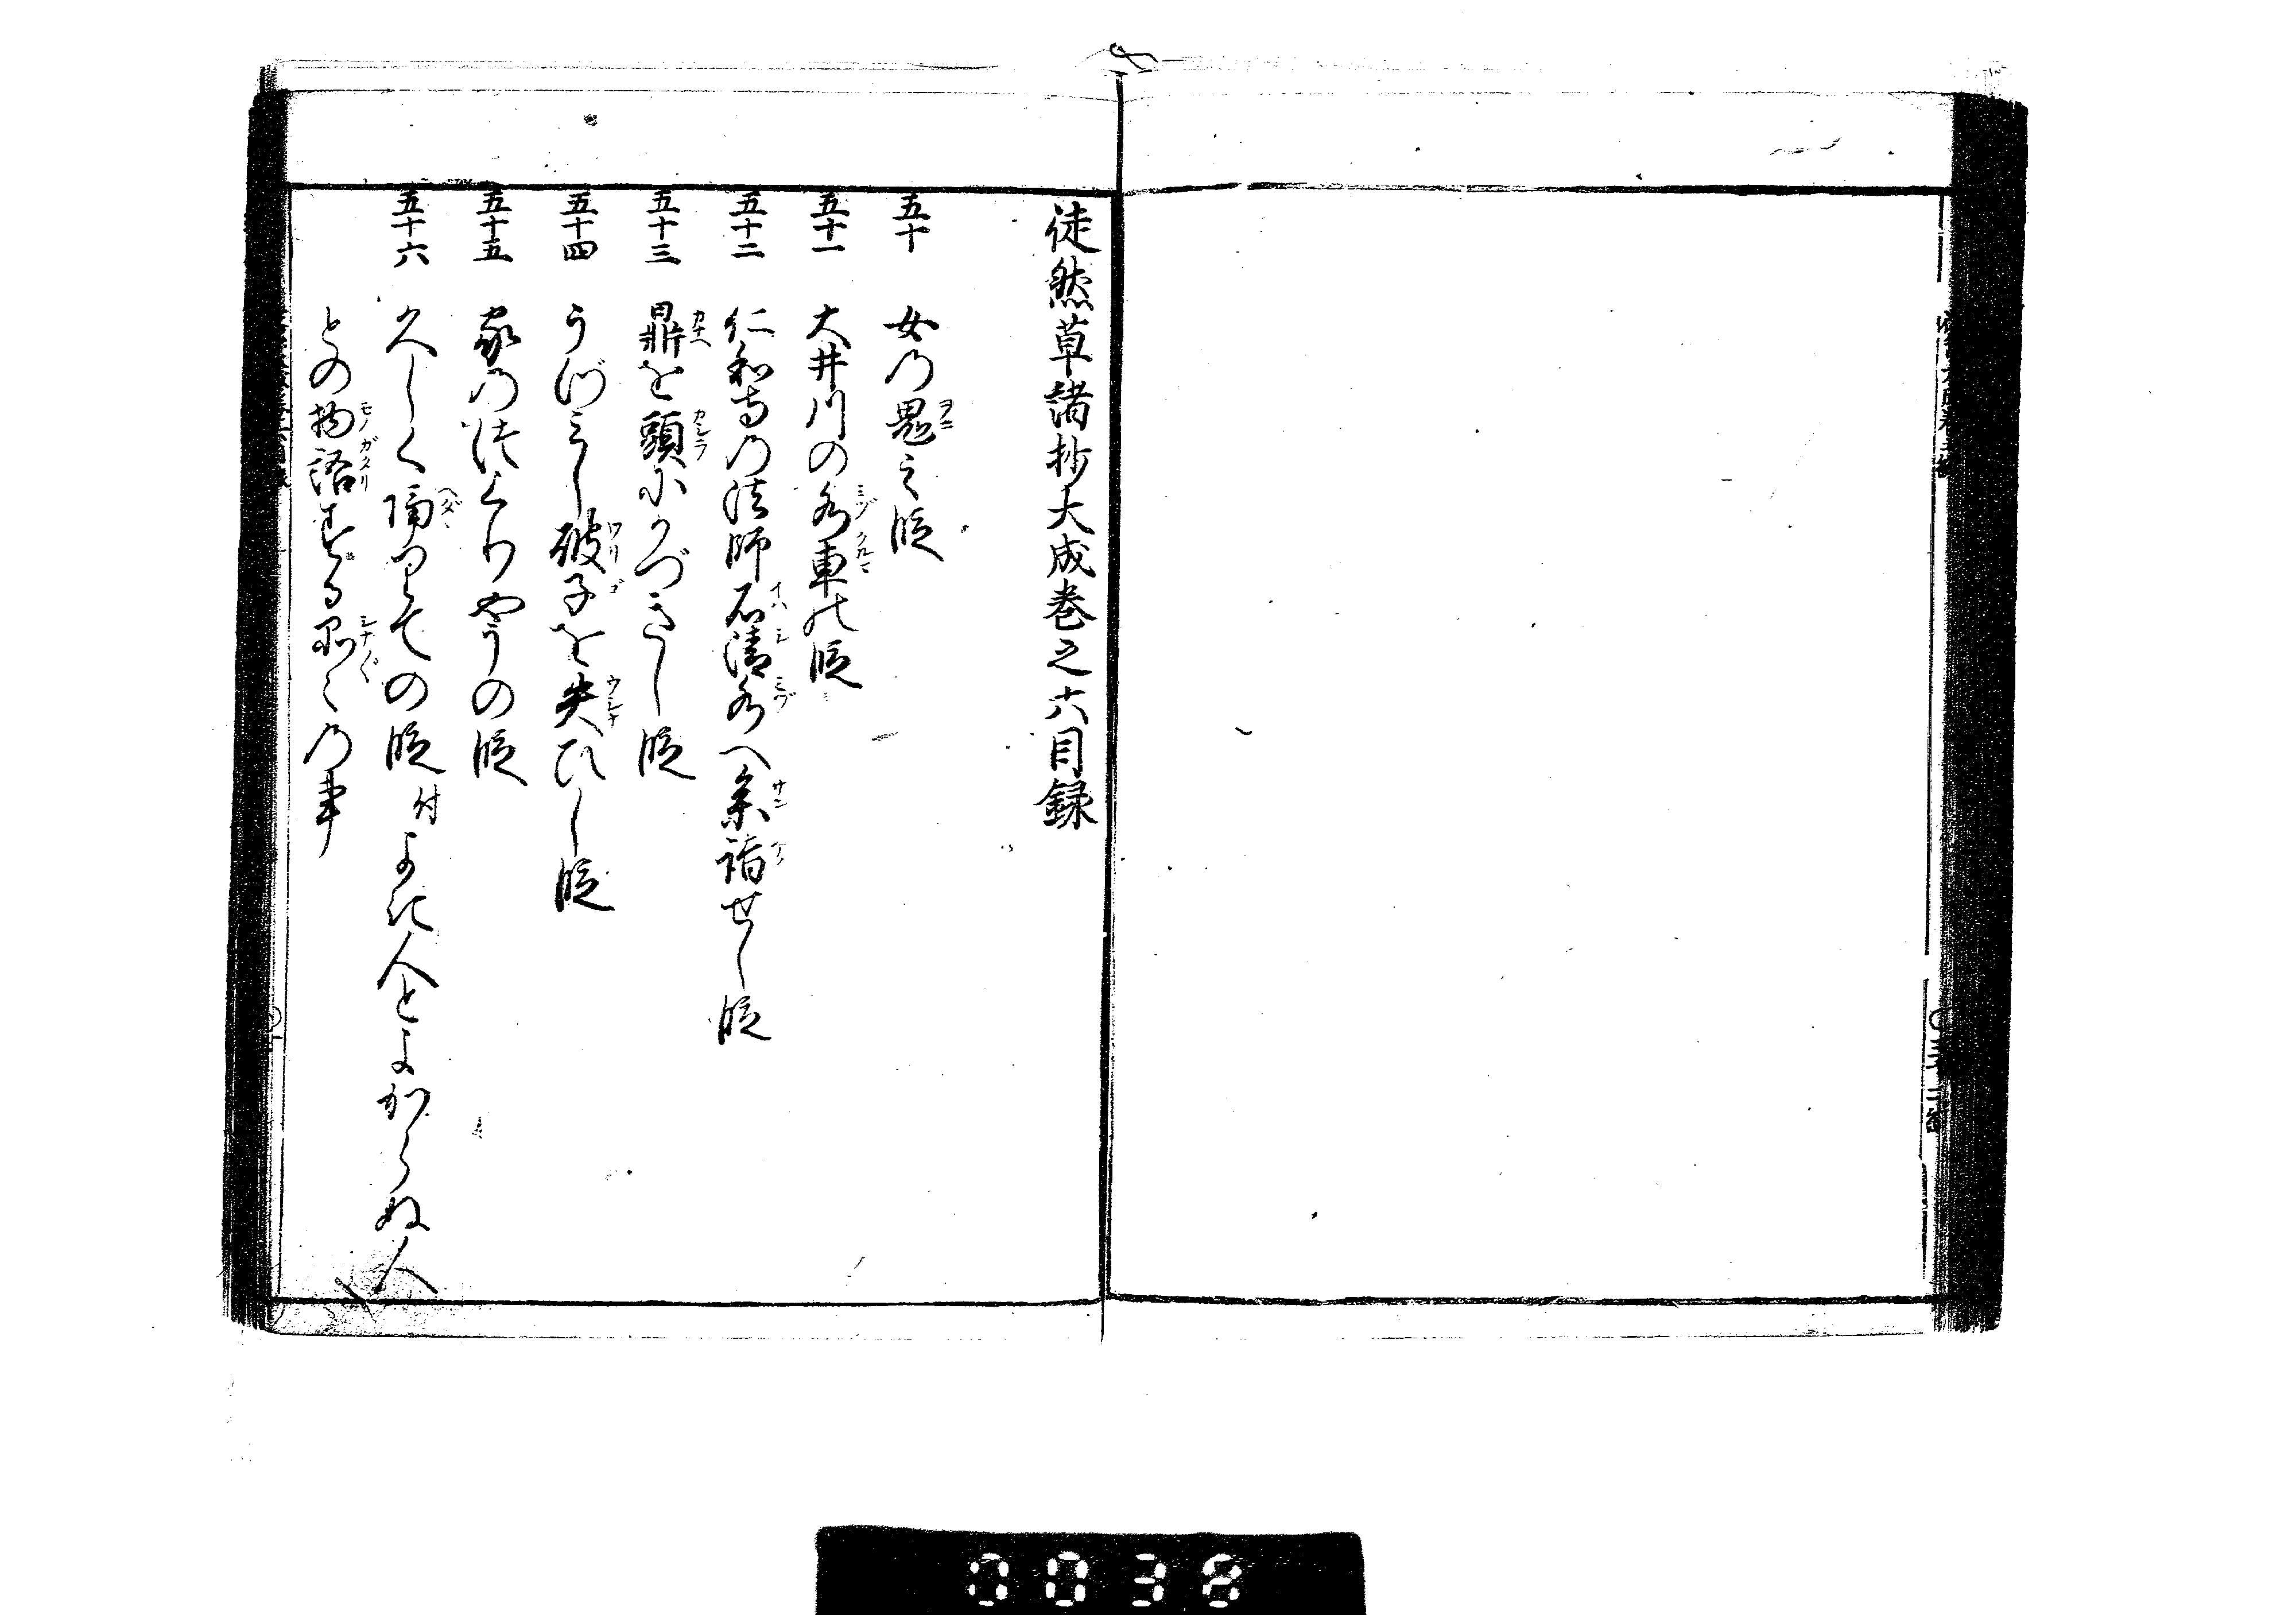 徒然草諸抄大成巻之六目録
五十　女の鬼之段
五十一　大井川の水車の段
五十二　仁和寺の法師石清水へ参詣せし段
五十三　鼎を頭にかづきし段
五十四　うづみし破子を失ひし段
五十五　家のつくりやうの段
五十六　久しく隔りての段 付 よき人とよからぬ人
との物語する品〻の事
0036